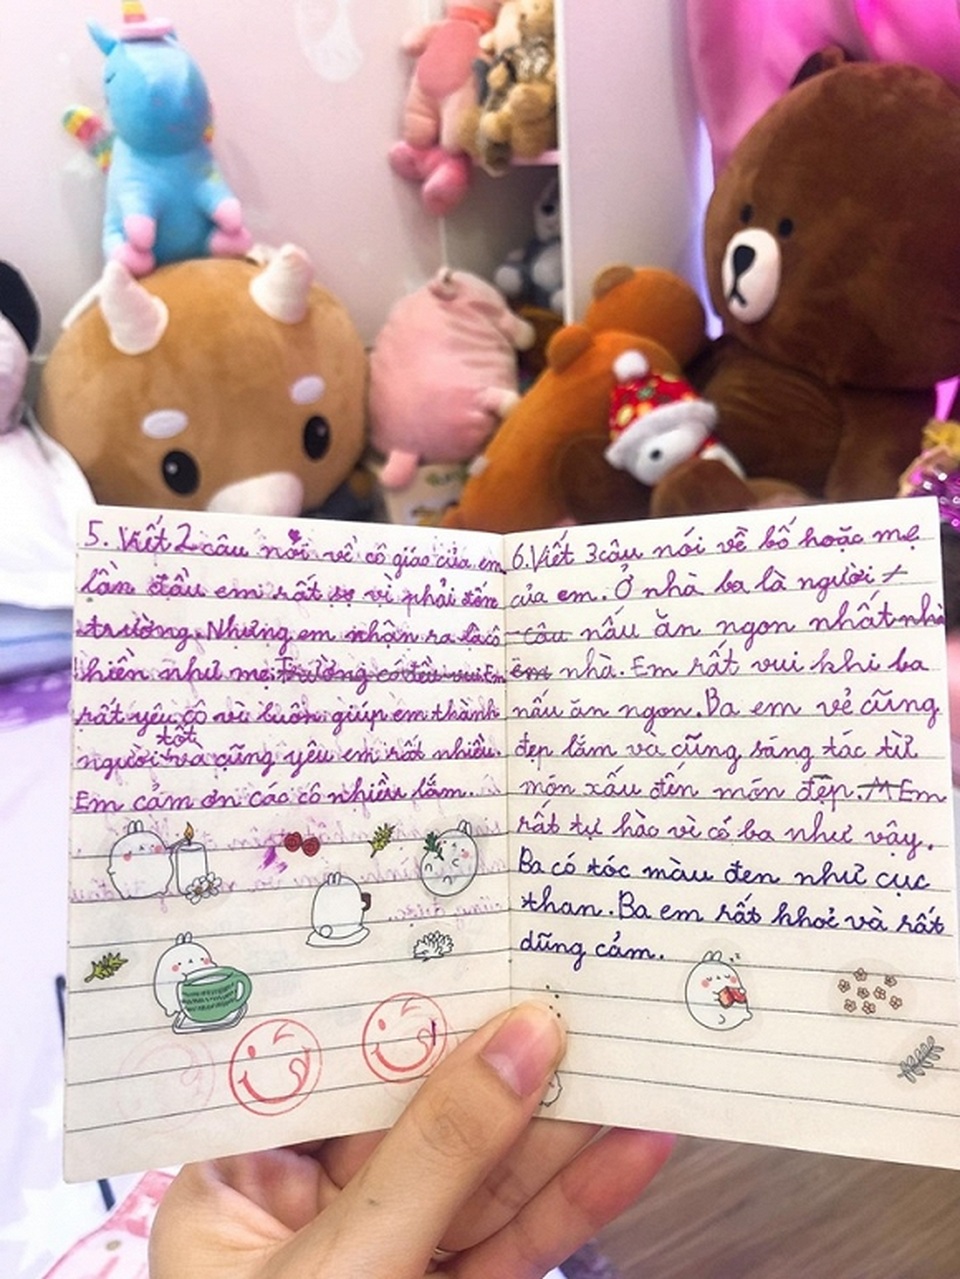 5. Viết 2 câu nói về cô giáo của em,
lần đầu em rất sợ vì phải đến
trường. Nhưng em nhận ra là cô
hiền như mẹ. Trường có đều vui Em
rất yêu cô vì luôn giúp em thành
người tốt và cũng yêu em rất nhiều.
Em cảm ơn các cô nhiều lắm.
6. Viết 3 câu nói về bố hoặc mẹ
của em. Ở nhà ba là người
câu nấu ăn ngon nhất nhà
em nhà. Em rất vui khi ba
nấu ăn ngon. Ba em vẻ cũng
đẹp lắm va cũng sáng tác từ
món xấu đến món đẹp. Em
rất tự hào vì có ba như vậy.
Ba có tóc màu đen như cục
than. Ba em rất khoẻ và rất
dũng cảm.